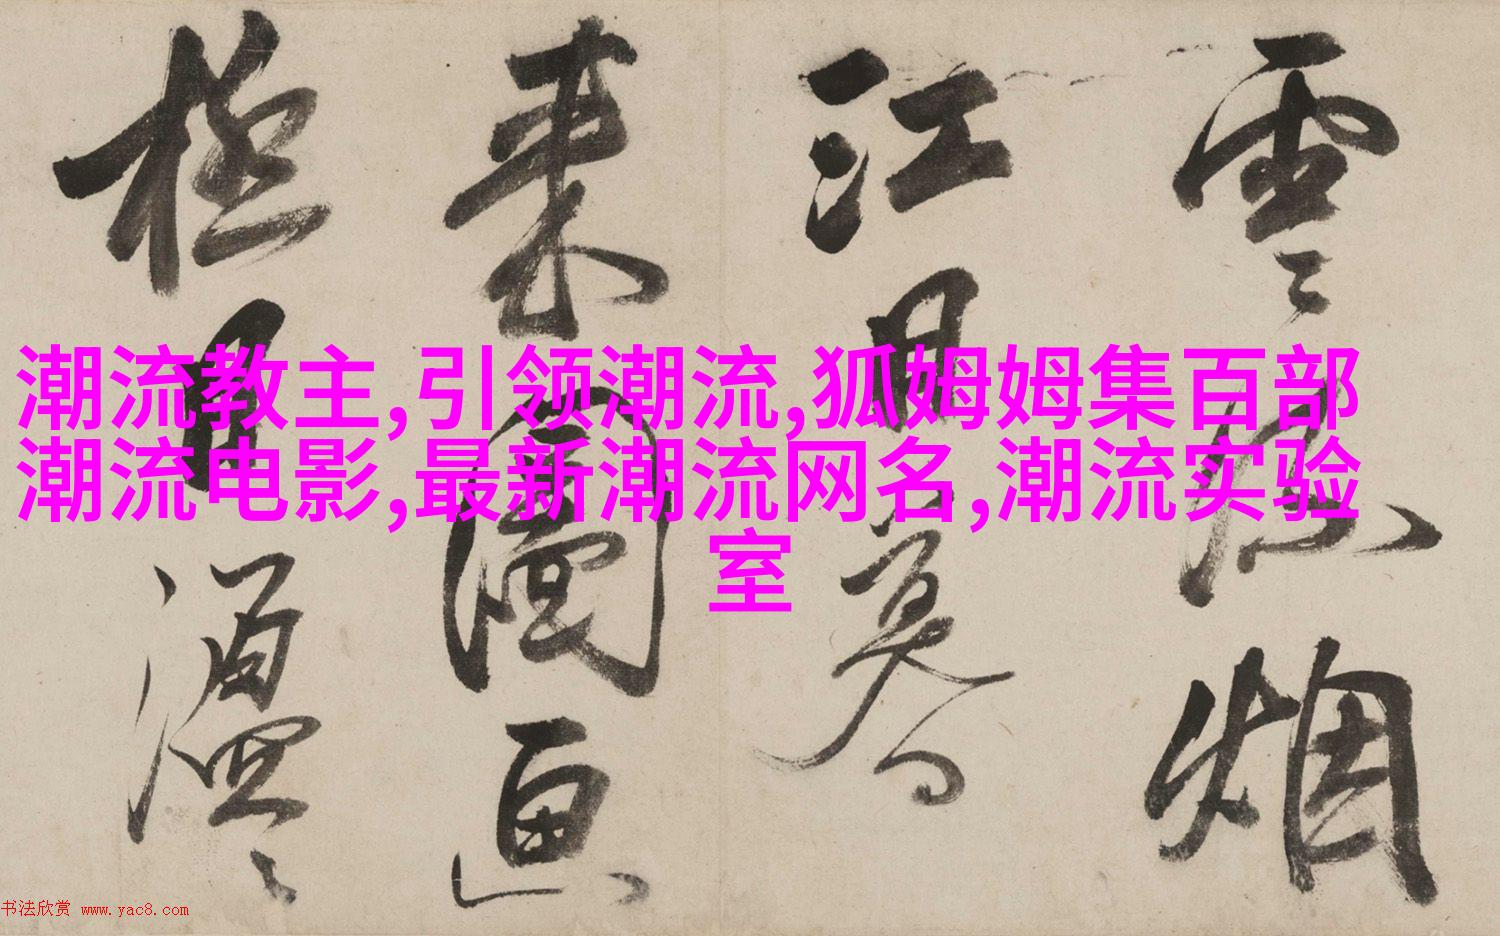 潮流教主,引领潮流,狐姆姆集百部
潮流电影,最新潮流网名,潮流实验
室
雲烟
江
来圖画
極目
书法欣赏 www.yac8.com